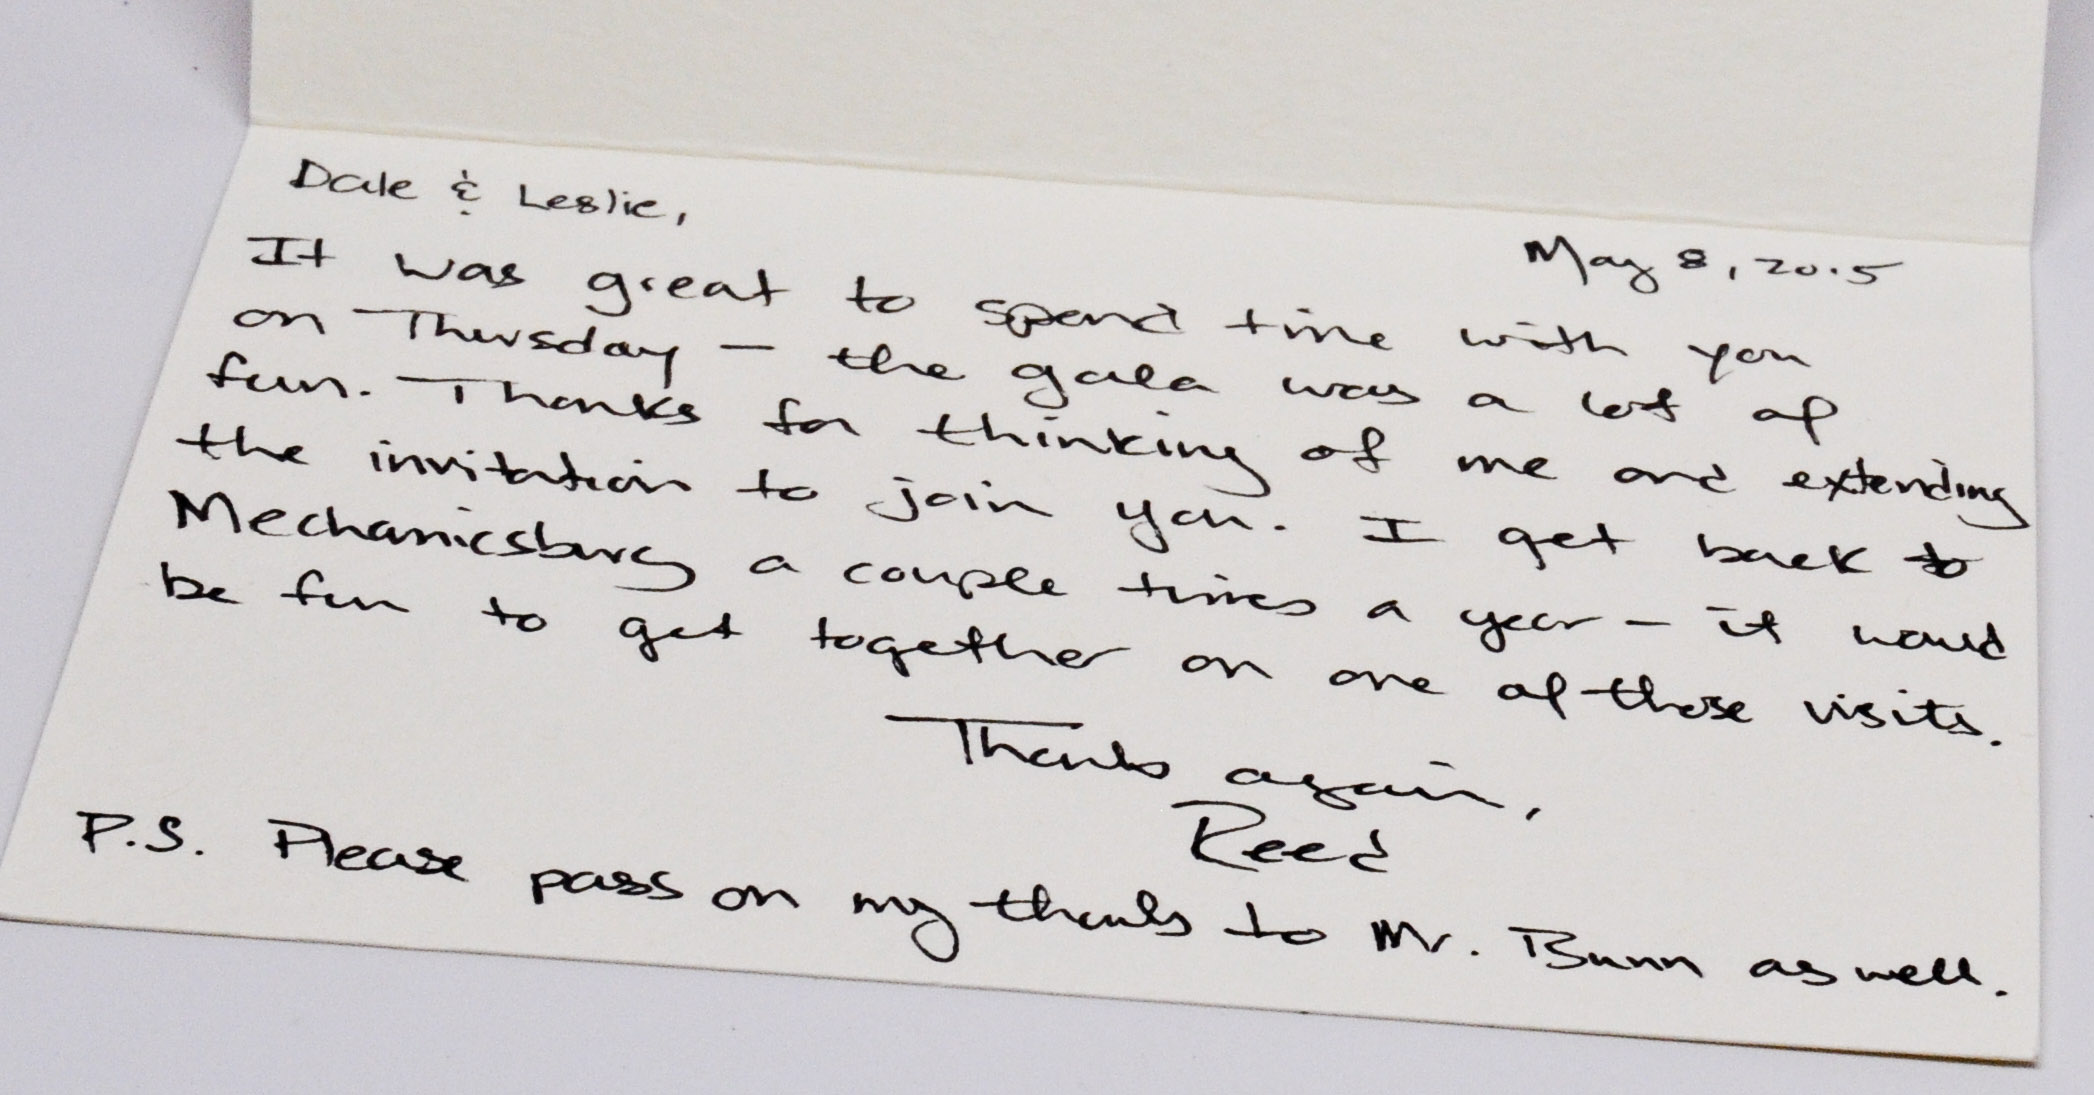 Dale & Leslie,
May 8, 2015
It was great to spend time with you
on Thursday – the gala was a lot of
fun. Thanks for thinking of me and extending
the invitation to join you. I get back to
Mechanicsburg a couple times a year – it would
be fun to get together on one of those visits.
Thanks again,
Reed
P.S. Please pass on my thanks to Mr. Bunn as well.